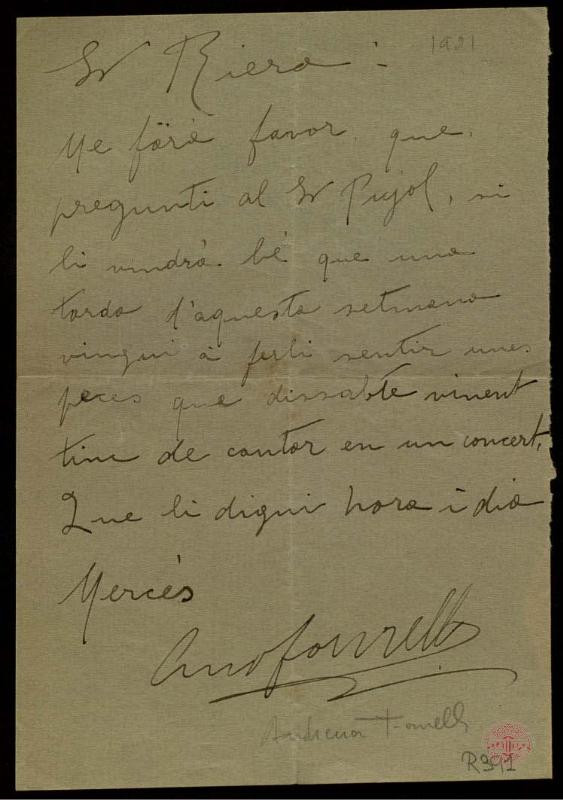 Sr Riera:
1921
Me farà favor que
pregunti al Sr Pujol, si
li vindrà bé que una
tarda d'aquesta setmana
vingui à ferli sentir unes
peces que dissabte vinent
tinc de cantar en un concert.
Que li digui hora i dia
Mercés
Fornells
R 391